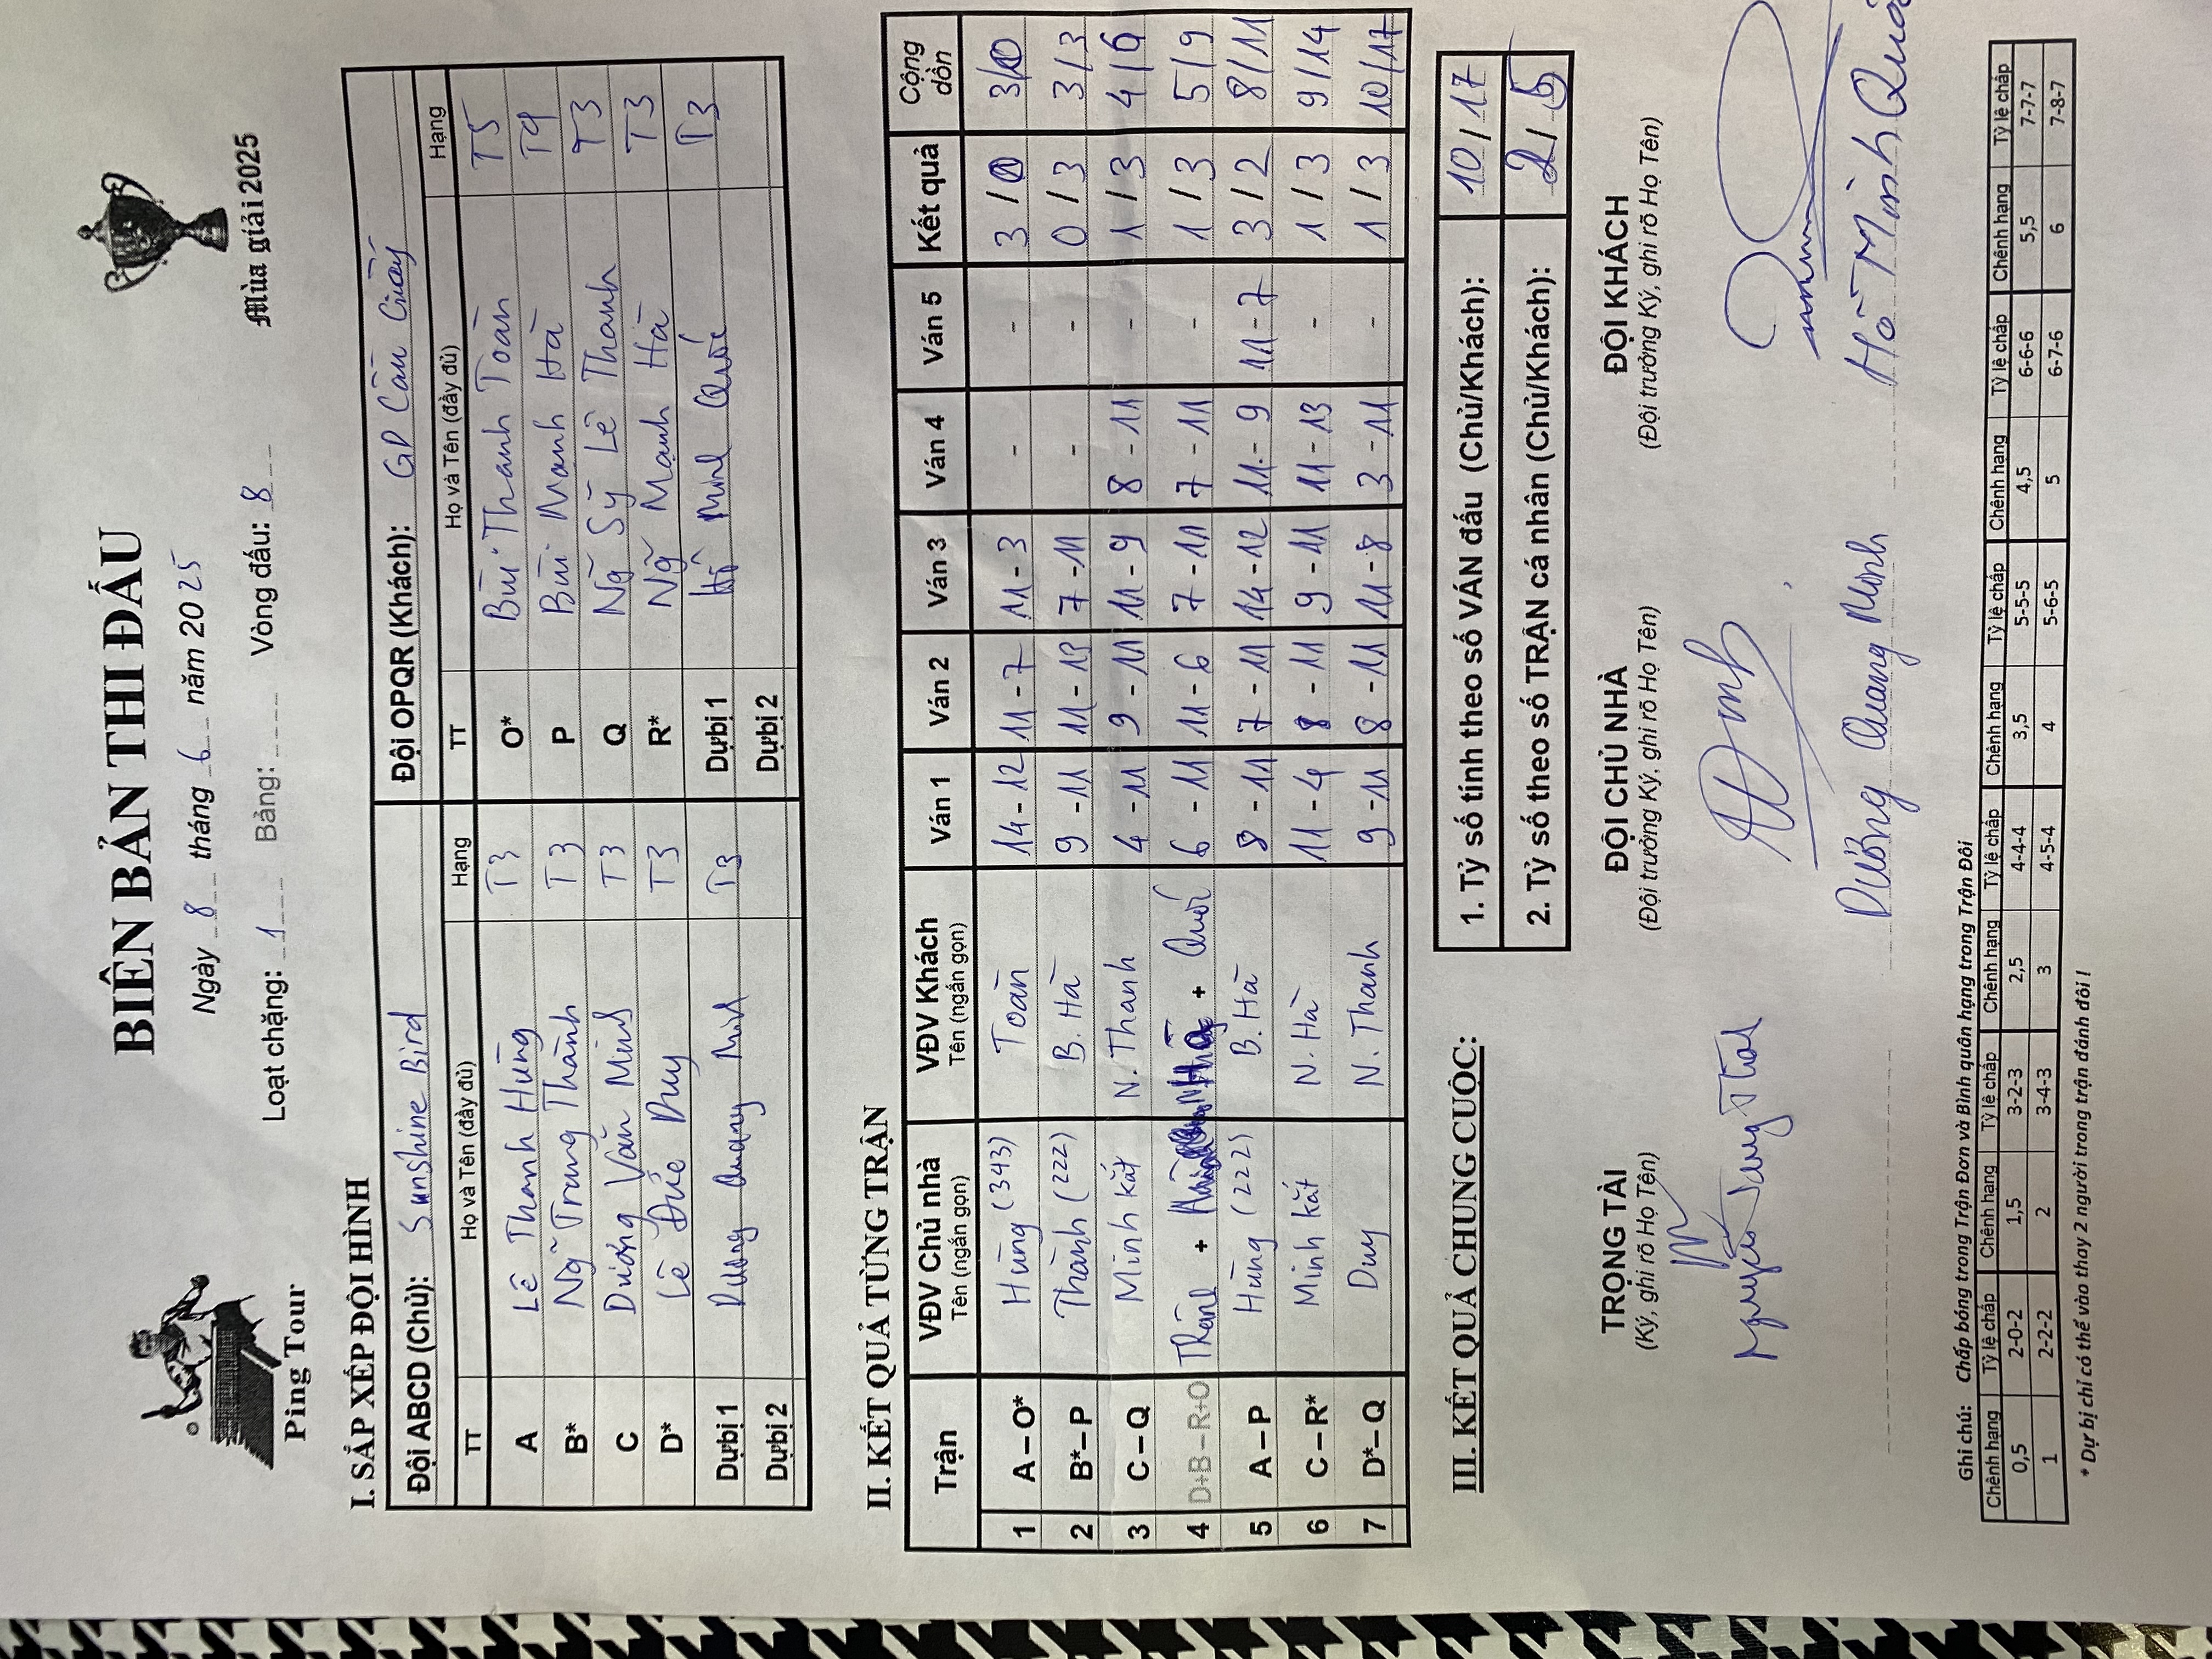 Ping Tour
BIÊN BẢN THI ĐẤU
Ngày 8 tháng 6 năm 2025
Loạt chặng: 1 Bảng: Vòng đấu: 8
Mùa giải 2025
I. SẮP XẾP ĐỘI HÌNH
Đội ABCD (Chủ): Sunshine Bird Đội OPQR (Khách): GP Cầu Giấy
TT Họ và Tên (đầy đủ) Hạng TT Họ và Tên (đầy đủ) Hạng
A Lê Thanh Hùng T3 O* Bùi Thanh Toàn T5
B* Ng Trung Thành T3 P Bùi Mạnh Hà T4
C Dương Văn Minh T3 Q Ng Sỹ Lê Thanh T3
D* Lê Đức Duy T3 R* Ng Mạnh Hà T3
Dự bị 1 Dương Quang Minh T3 Dự bị 1 Hồ Minh Quốc T3
Dự bị 2 Dự bị 2
II. KẾT QUẢ TỪNG TRẬN
Trận VĐV Chủ nhà VĐV Khách Ván 1 Ván 2 Ván 3 Ván 4 Ván 5 Kết quả Cộng dồn
Tên (ngắn gọn) Tên (ngắn gọn)
1 A – O* Hùng (343) Toàn 14 - 12 11 - 7 11 - 3 - - 3 / 0 3/0
2 B* – P Thành (222) B. Hà 9 - 11 11 - 13 7 - 11 - - 0 / 3 3/3
3 C – Q Minh kắt N. Thanh 4 - 11 9 - 11 11 - 9 8 - 11 - 1 / 3 4/6
4 D+B – R+O Thành + + Quốc 6 - 11 11 - 6 7 - 11 7 - 11 - 1 / 3 5/9
5 A – P Hùng (222) B. Hà 8 - 11 7 - 11 14 - 12 11 - 9 11 - 7 3 / 2 8/11
6 C – R* Minh kắt N. Hà 11 - 4 8 - 11 9 - 11 11 - 13 - 1 / 3 9/14
7 D* – Q Duy N. Thanh 9 - 11 8 - 11 11 - 8 3 - 11 - 1 / 3 10/17
III. KẾT QUẢ CHUNG CUỘC:
1. Tỷ số tính theo số VÁN đấu (Chủ/Khách): 10 / 17
2. Tỷ số theo số TRẬN cá nhân (Chủ/Khách): 2 / 5
TRỌNG TÀI ĐỘI CHỦ NHÀ ĐỘI KHÁCH
(Ký, ghi rõ Họ Tên) (Đội trưởng Ký, ghi rõ Họ Tên) (Đội trưởng Ký, ghi rõ Họ Tên)
Dương Quang Minh Hồ Minh Quốc
Ghi chú: Chấp bóng trong Trận Đơn và Bình quân hạng trong Trận Đôi
Chênh hạng Tỷ lệ chấp Chênh hạng Tỷ lệ chấp Chênh hạng Tỷ lệ chấp Chênh hạng Tỷ lệ chấp Chênh hạng Tỷ lệ chấp Chênh hạng Tỷ lệ chấp
0,5 2-0-2 1,5 3-2-3 2,5 4-4-4 3,5 5-5-5 4,5 6-6-6 5,5 7-7-7
1 2-2-2 2 3-4-3 3 4-5-4 4 5-6-5 5 6-7-6 6 7-8-7
* Dự bị chỉ có thể vào thay 2 người trong trận đánh đôi !